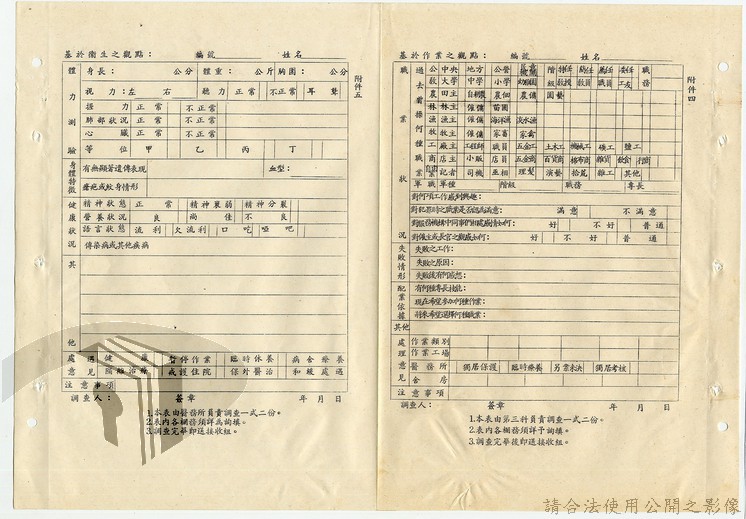 基於衛生之觀點： 編號 姓名
附件五
體力測驗
身長： 公分 體重： 公斤 胸圍： 公分
視力：左 右 聽力 正常 不正常 耳聾
握力 正常 不正常
肺部狀況 正常 不正常
心臟 正常 不正常
等位 甲 乙 丙 丁
身體特徵
有無顯著遺傳表現 血型：
瘡疤或紋身情形
健康狀況
精神狀態 正常 精神衰弱 精神分裂
營養狀況 良 尚佳 不良
語言狀態 流利 欠流利 口吃 啞吧
傳染病或其他疾病
其他
處遇意見
健康 暫停作業 臨時休養 病舍療養
隔離治療 戒護住院 保外醫治 和緩處遇
注意事項
調查人： 簽章 年 月 日
1.本表由醫務所員責調查一式二份。
2.表內各欄務須詳為詢填。
3.調查完畢即送接收組。
基於作業之觀點： 編號 姓名
附件四
職業狀況
過去曾操何種職業
公 中央 地方 公營 階級 特任 簡任 薦任 委任 職務
教 大學 中學 小學 幼稚園 級 教授 教員 職員 工友
農 田主 自耕農 佃農 園藝
林 林主 僱傭 苗圃
漁 漁主 僱傭 海洋漁 淡水漁
牧 牧主 僱傭 家畜 家禽
工 廠主 工程師 職員 五金工 土木工 機械工 礦工 鹽工
商 店主 小販 店員 五金商 百貨商 棉布商 雜貨 飲食 行商
自由業 記者 司機 巫相 理髮 演藝 拾荒 雜工 其他
軍職 軍種 階級 職務 專長
對何項工作感到興趣：
對犯罪時之職業是否認為滿意： 滿意 不滿意
對服務機構中同事們相處感情如何： 好 不好 普通
對僱主或長官之觀感如何： 好 不好 普通
失敗情形
失敗之工作：
失敗之原因：
失敗後有何感想：
配業依據
有何種專長技能：
現在希望參加何種作業：
將來希望選擇何種職業：
其他
處理意見
作業類別
作業工場
醫務所 獨居保護 臨時療養 另業未決 獨居考核
舍房
注意事項
調查人： 簽章 年 月 日
1.本表由第三科員責調查一式二份。
2.表內各欄務須詳予詢填。
3.調查完畢後即送接收組。
請合法使用公開之影像